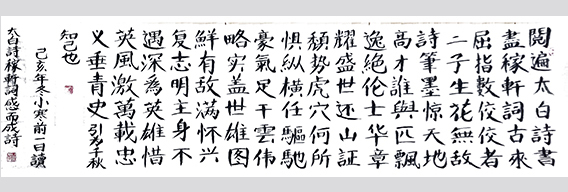 閱遍太白詩書
盡稼軒詞古來
屈指數佼佼者
二子生花無故
詩筆墨驚天地
高才誰與匹飄
逸絕伦士华章
耀盛世还山証
頹势虎穴何所
惧纵横任驅馳
豪氣足干雲伟
略穷盖世雄图
鮮有敌满怀兴
复志明主身不
遇深為英雄惜
英風激萬載忠
义垂青史引为千秋
知己也
己亥年冬小寒前二日讀
太白詩稼軒詞感而成詩